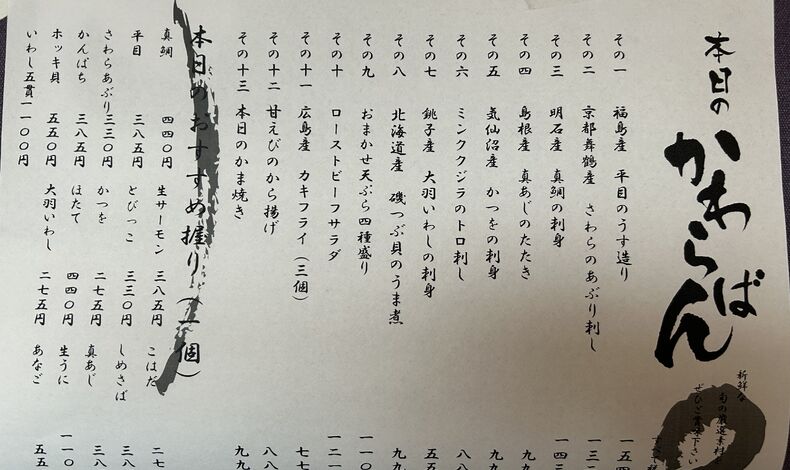 本日の
かわらばん
新鮮な
旬の厳選素材
ぜひご賞味下さい
その一 福島産 平目のうす造り 一五四
その二 京都舞鶴産 さわらのあぶり刺し 一三
その三 明石産 真鯛の刺身 一四三
その四 島根産 真あじのたたき 九九
その五 気仙沼産 かつをの刺身 一三
その六 ミンククジラのトロ刺し 九九
その七 銚子産 大羽いわしの刺身 五五
その八 北海道産 磯つぶ貝のうま煮 九九
その九 おまかせ天ぷら四種盛り 一一〇
その十 ローストビーフサラダ 一二一
その十一 広島産 カキフライ(三個) 七七
その十二 甘えびのから揚げ 八八
その十三 本日のかま焼き 九九
本日のおすすめ握り(二個)
真鯛 四四〇円 生サーモン 三八五円 こはだ 二七
平目 三八五円 とびっこ 三三〇円 しめさば 三八
さわらあぶり 三三〇円 かつを 二七五円 真あじ 三八
かんぱち 三八五円 ほたて 四四〇円 生うに 一一〇
ホッキ貝 五五〇円 大羽いわし 二七五円 あなご 五五
いわし五貫 一一〇〇円